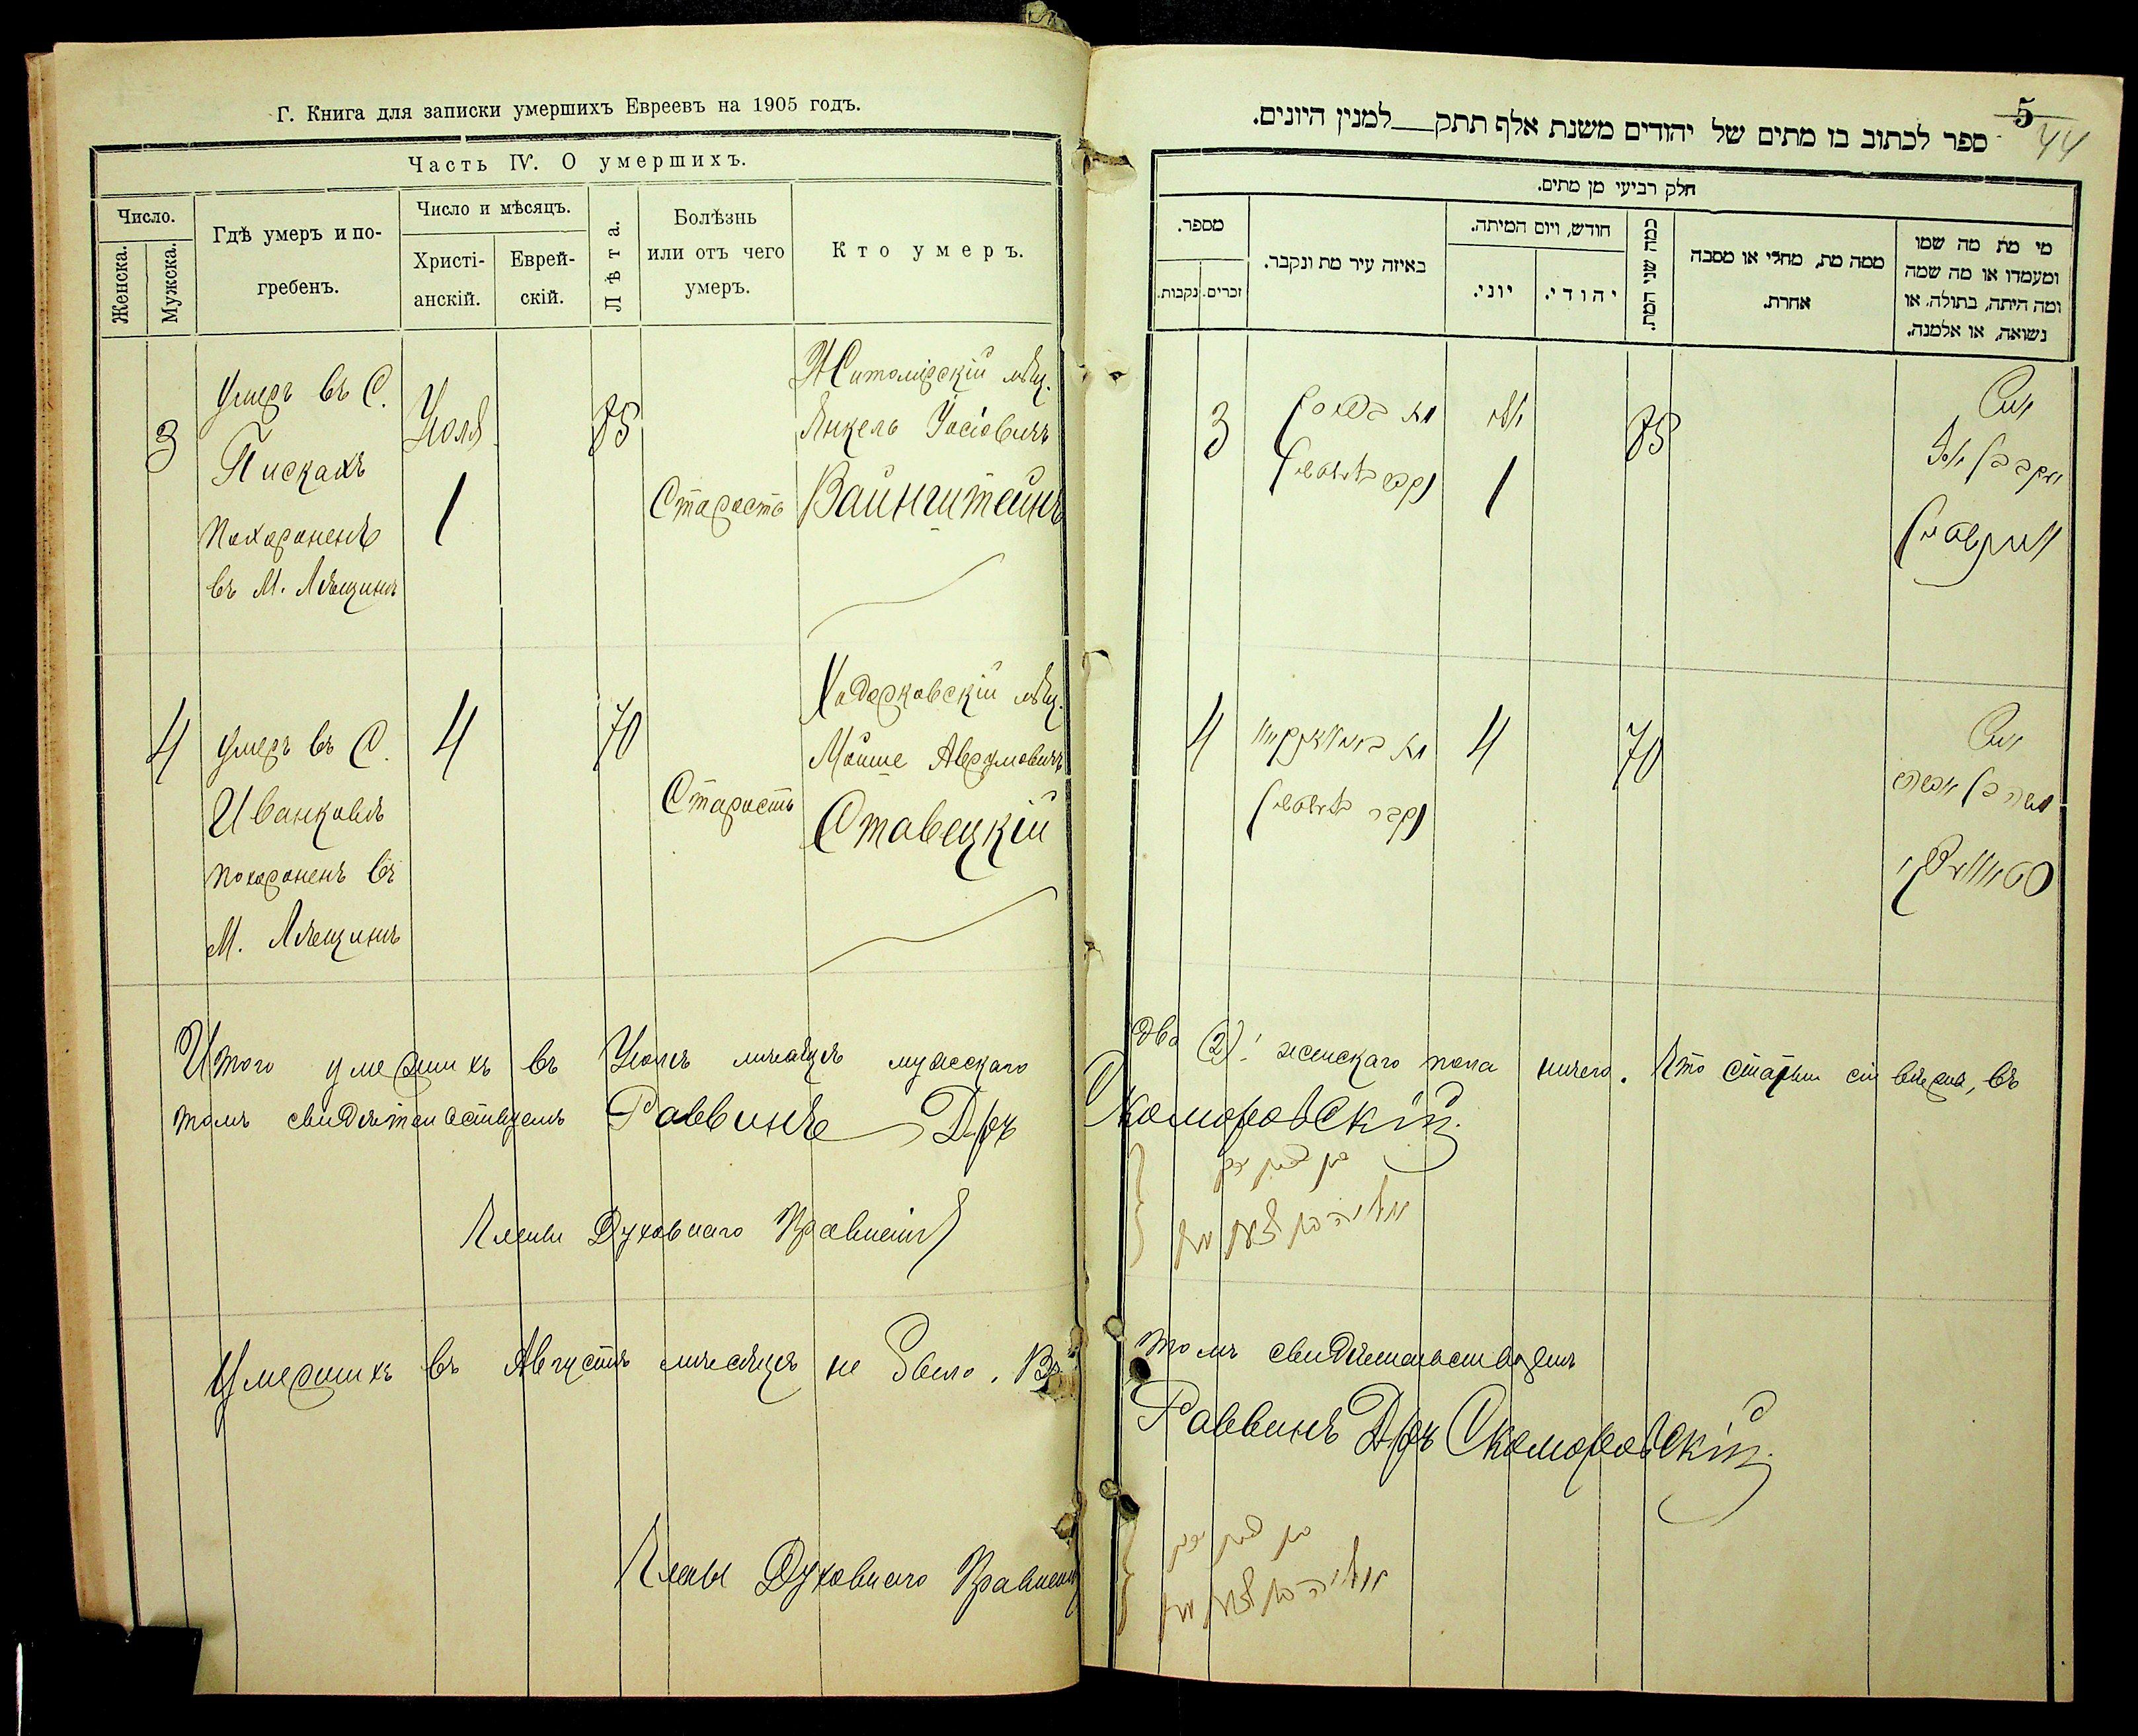 Г. Книга для записки умершихъ Евреевъ на 1905 годъ.
Часть IV. О умершихъ.
Число.
Женска.
Мужска.
Гдѣ умеръ и по-
гребенъ.
Число и мѣсяцъ.
Христі-
анскій.
Еврей-
скій.
Лѣта.
Болѣзнь
или отъ чего
умеръ.
Кто умеръ.
3
Умеръ въ С.
Пискахъ
Похороненъ
въ М. Лѣщинѣ
Іюля
1
85
Старость
Житомірскій мѣщ.
Янкель Іосіовичъ
Вайнштейнъ
4
Умеръ въ С.
Иванковѣ
похороненъ въ
М. Лѣщинѣ
4
70
Старость
Ходорковскій мѣщ.
Мойше Аврумовичъ
Ставецкій
Итого умершихъ въ Іюлѣ мѣсяцѣ мужскаго
томъ свидѣтельствуемъ Раввинъ Д-ръ
Члены Духовнаго Правленія
Умершихъ въ Августѣ мѣсяцѣ не было. Въ
Члены Духовнаго Правленія
5
44
ספר לכתוב בו מתים של יהודים משנת אלף תתק למנין היונים.
חלק רביעי מן מתים.
מספר.
נקבות.
זכרים.
באיזה עיר מת ונקבר.
חודש, ויום המיתה.
יוני.
יהודי.
כמה שני המת.
ממה מת, מחלי או מסבה
אחרת.
מי מת מה שמו
ומעמדו או מה שמה
ומה היתה, בתולה, או
נשואה, או אלמנה.
3
מת
1
85
יעקב בן יוסף
וויינשטיין
4
מת
4
70
משה בן אברהם
סטאוועצקי
два (2)! женскаго пола ничего. Что статьи сіи вѣрны, въ
Скоморовскій.
томъ свидѣтельствуемъ
Раввинъ Д-ръ Скоморовскій.